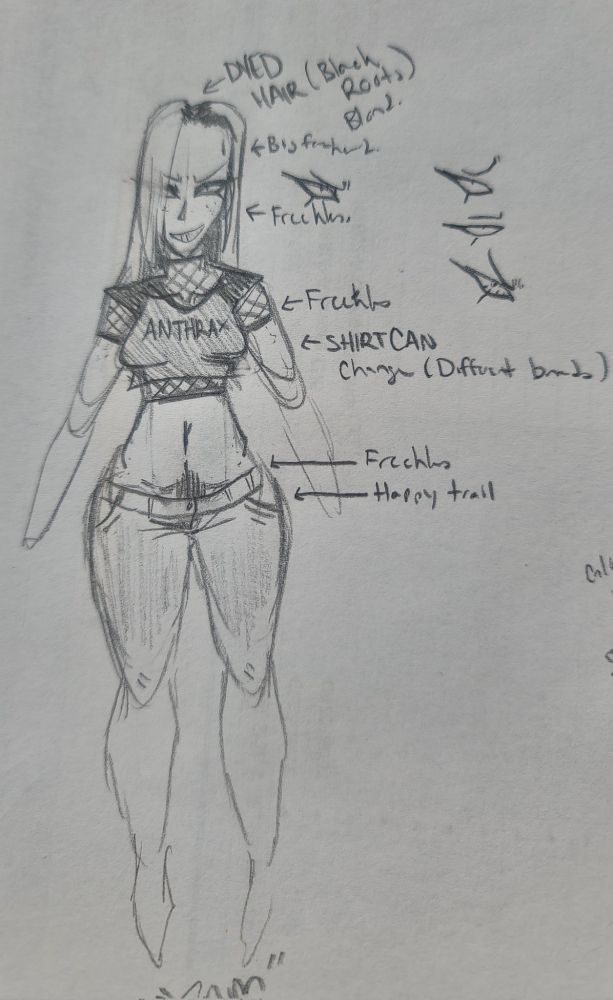 DYED
HAIR (Black
Roots)
Blond.
← Big forehead.
← Freckles.
← Freckles
ANTHRAX
← SHIRT CAN
Change (Different bands)
← Freckles
← Happy trail